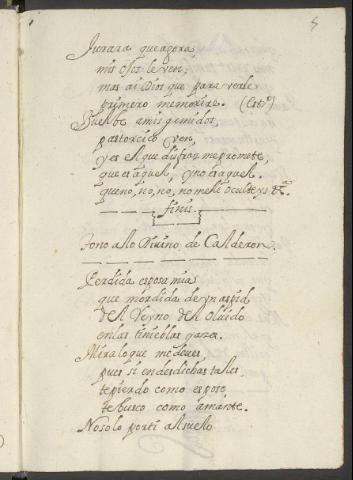 5
Jurara que agora
mis ojos le ven,
mas ai Dios que para verle
primero memorire. (Esto)
Buelbe a mis gemidos,
pastorcico ven,
y es el que disfraz me promete,
que es aquel, y no es aquel.
que no, no, no, no me le oculteys &a.
finis.
Tono a lo Divino, de Calderon.
Perdida esposa mia
que mordida de vn aspid
del Reyno del oluido
en las tinieblas yazes.
Mira lo que me deues,
pues si en desdichas tales
te pierdo como esposo
te busco como amante.
No solo por ti al suelo